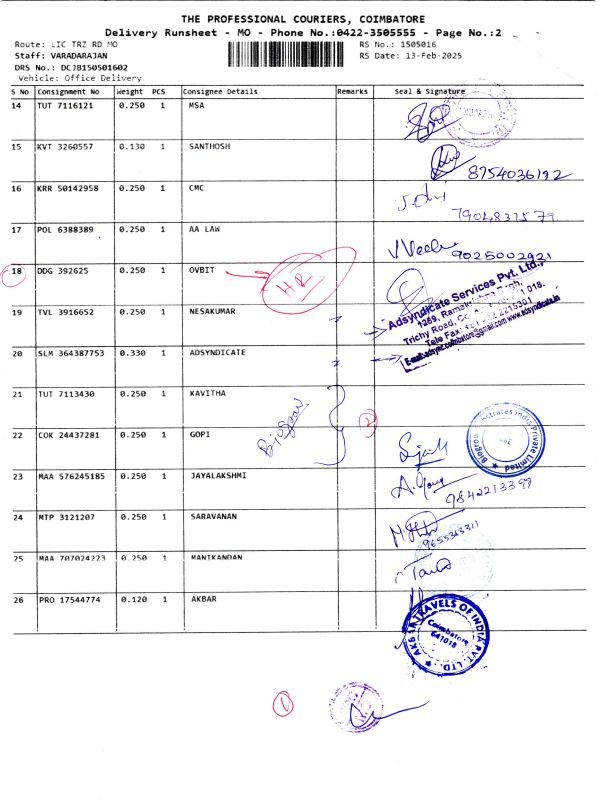 THE PROFESSIONAL COURIERS, COIMBATORE
Delivery Runsheet - MO - Phone No.:0422-3505555 - Page No.:2
Route: LIC TRZ RD MO
RS No.: 1505016
Staff: VARADARAJAN
RS Date: 13-Feb-2025
DRS No.: DCJB150501602
Vehicle: Office Delivery
S No Consignment No Weight PCS Consignee Details Remarks Seal & Signature
14 TUT 7116121 0.250 1 MSA
15 KVT 3260557 0.130 1 SANTHOSH
8754036192
16 KRR 50142958 0.250 1 CMC
7904837579
17 POL 6388389 0.250 1 AA LAW
9025002921
18 DDG 392625 0.250 1 OVBIT HR
Adsyndicate Services Pvt. Ltd.,
19 TVL 3916652 0.250 1 NESAKUMAR
20 SLM 364387753 0.330 1 ADSYNDICATE
21 TUT 7113430 0.250 1 KAVITHA
2
22 COK 24437281 0.250 1 GOPI
23 MAA 576245185 0.250 1 JAYALAKSHMI
9842213399
24 MTP 3121207 0.250 1 SARAVANAN
9655363311
25 MAA 707024223 0.250 1 MANIKANDAN
26 PRO 17544774 0.120 1 AKBAR
AKBAR TRAVELS OF INDIA PVT. LTD.
Coimbatore
641018
1